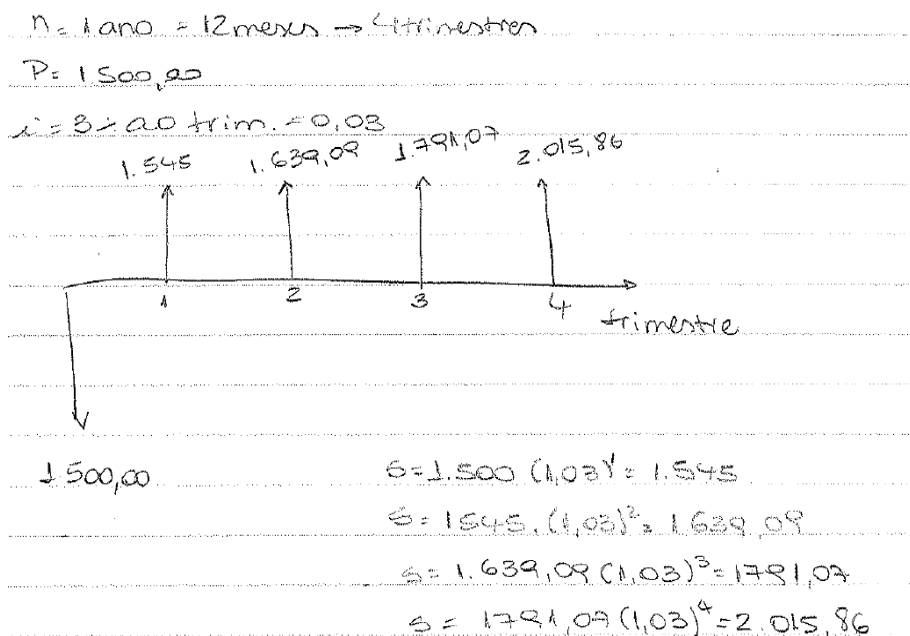 n = 1 ano = 12 meses → 4 trimestres
P = 1 500,00
i = 3% ao trim. = 0,03
1.545 1.639,09 1.791,07 2.015,86
1 2 3 4
trimestre
1 500,00
S = 1.500 (1,03)¹ = 1.545
S = 1545. (1,03)² = 1.639,09
S = 1.639,09 (1,03)³ = 1791,07
S = 1791,07 (1,03)⁴ = 2.015,86